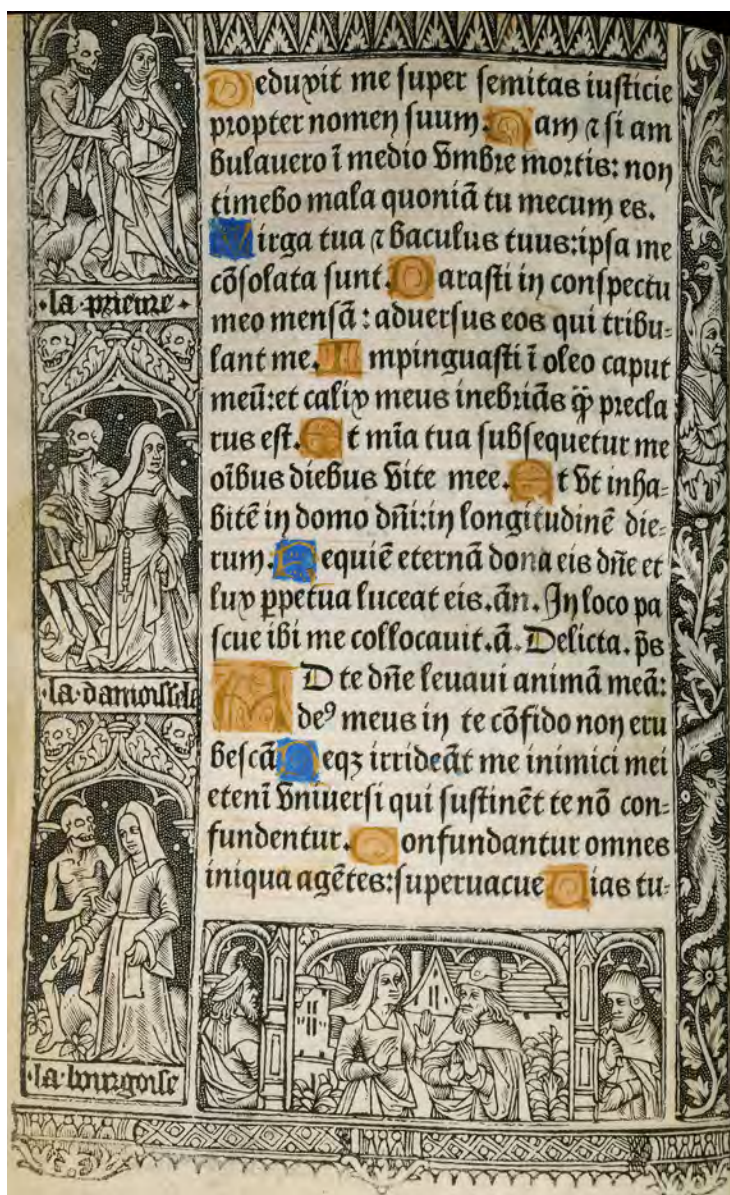 Deduxit me super semitas iusticie
propter nomen suum. Nam ⁊ si am
bulauero ī medio vmbre mortis: non
timebo mala quoniā tu mecum es.
Virga tua ⁊ baculus tuus: ipsa me
cōsolata sunt. Parasti in conspectu
meo mensā: aduersus eos qui tribu-
lant me. Impinguasti ī oleo caput
meū: et calix meus inebriās q̄ȝ precla
rus est. Et mīa tua subsequetur me
oībus diebus vite mee. Et vt inha-
bitē in domo dn̄i: in longitudinē die-
rum. Requiē eternā dona eis dn̄e et
lux ꝑpetua luceat eis. ān. In loco pa
scue ibi me collocauit. ā. Delicta. p̄s
AD te dn̄e leuaui animā meā:
deꝰ meus in te cōfido non eru
bescā Neqȝ irrideāt me inimici mei
etenī vniuersi qui sustinēt te nō con-
fundentur. Confundantur omnes
iniqua agētes: superuacue Vias tu-
·la·prieure·
·la·damoiselle
·la·bourgoise